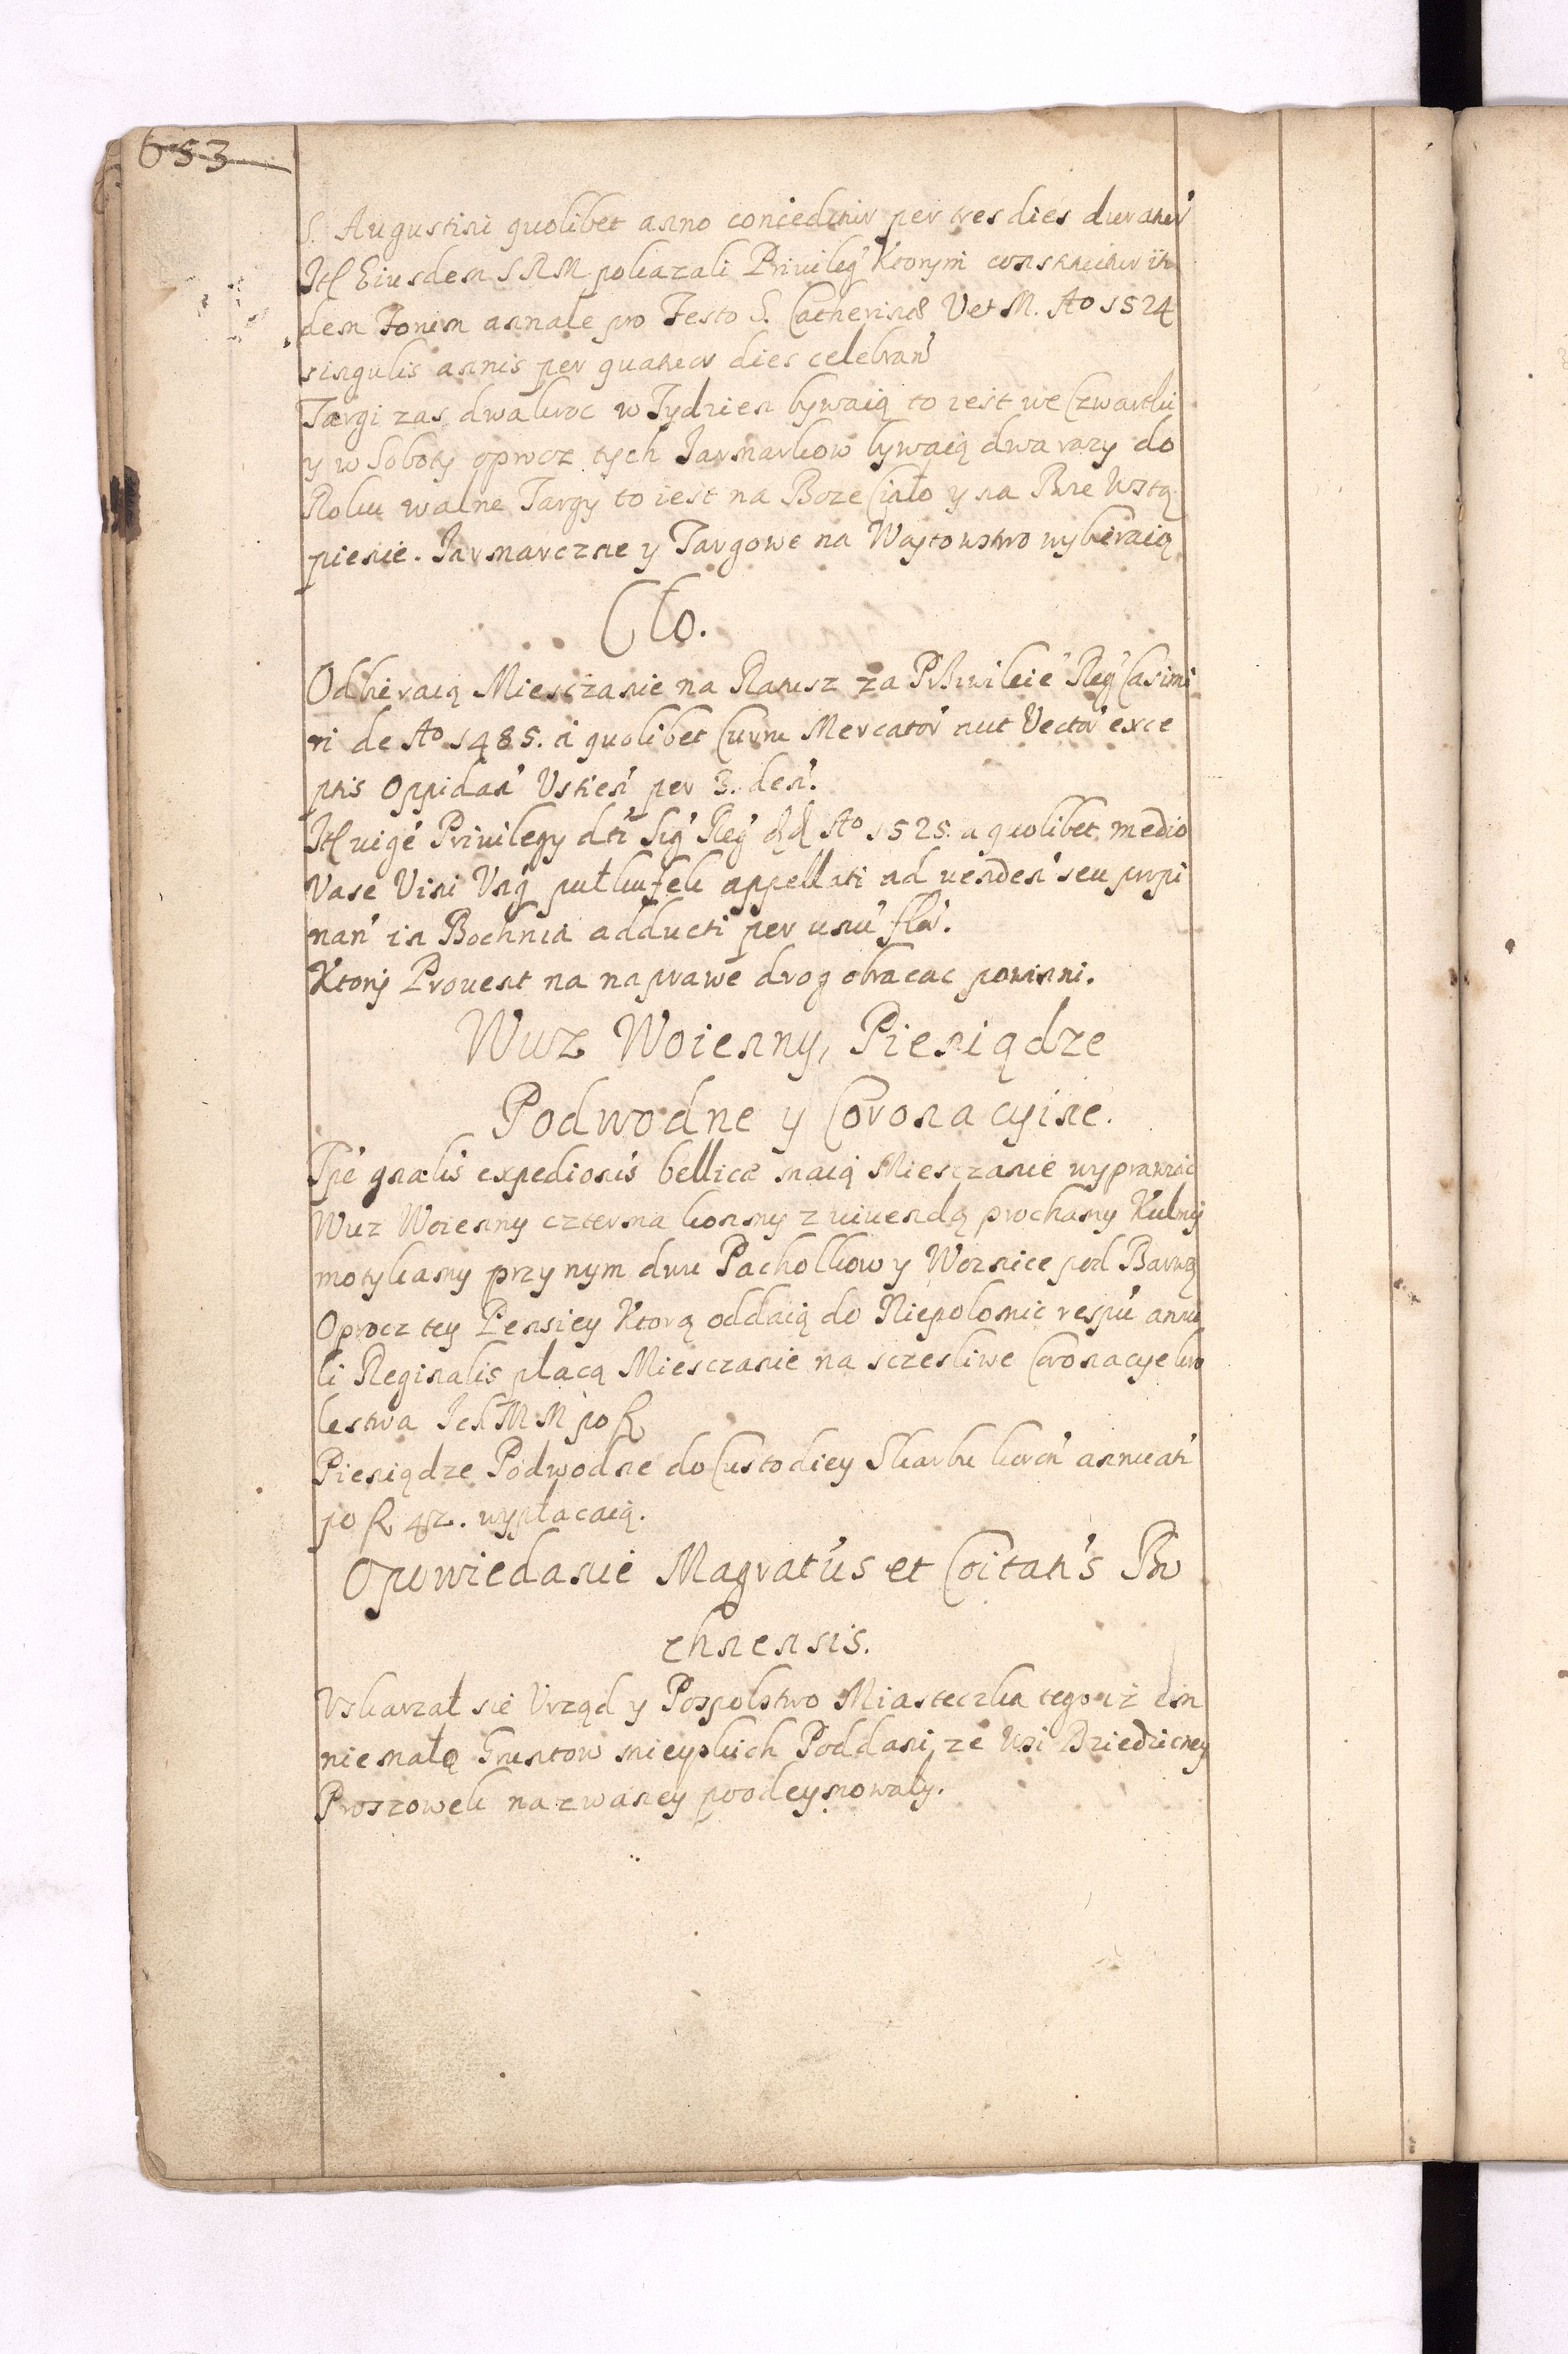 653
S. Augustini quolibet anno conceditur per tres dies duratur
Itt Eiusdem S R M pokazali Privileg Ktorym constituitur ib
dem Forum annale pro Festo S. Catherinae V et M. Ao 1524
singulis annis per quatuor dies celebran
Targi zas dwakroc w Tydzien bywaią to iest we Czwartki
y w Soboty oprocz tych Jarmarkow bywaią dwa razy do
Roku walne Targy to iest na Boze Ciało y na Bże Wstą
pienie. Jarmarczne y Targowe na Woytowstwo wybieraią
Cło.
Odbieraią Miesczanie na Ratusz za Privileie Reg Casimi
ri de Ao 1485. a quolibet Curru Mercator aut Vector exce
ptis Oppidan Ustien per 3. den.
Itt vige Privilegy dti Sig Reg dd Ao 1525. a quolibet medio
Vase Vini Ung pułkufek appellati ad venden seu propi
nan in Bochnia adducti per unu flor.
Ktory Provent na naprawe drog obracac powinni.
Wuz Woienny, Pieniądze
Podwodne y Coronacyine.
Tpe gnalis expedionis bellicae maią Miesczanie wyprawic
Wuz Woienny czterma konmy z vivendą prochamy Kulmy
motykamy przy nym dwu Pachołkow y Woznice pod Barwą
Oprocz tey Pensiey Ktorą oddaią do Niepolomic respu annu
li Reginalis płacą Miesczanie na sczesliwe Coronacye kro
lestwa Ich M M po fl
Pieniądze Podwodne do Custodiey Skarbu koron annuati
po fl 42. wypłacaią.
Opowiedanie Magratus et Coitatis Bo
chnensis.
Uskarzał sie Urząd y Pospolstwo Miasteczka tego iz im
niemało Gruntow mieyskich Poddani ze Wsi Dziedziczney
Proszowek nazwaney poodeymowały.